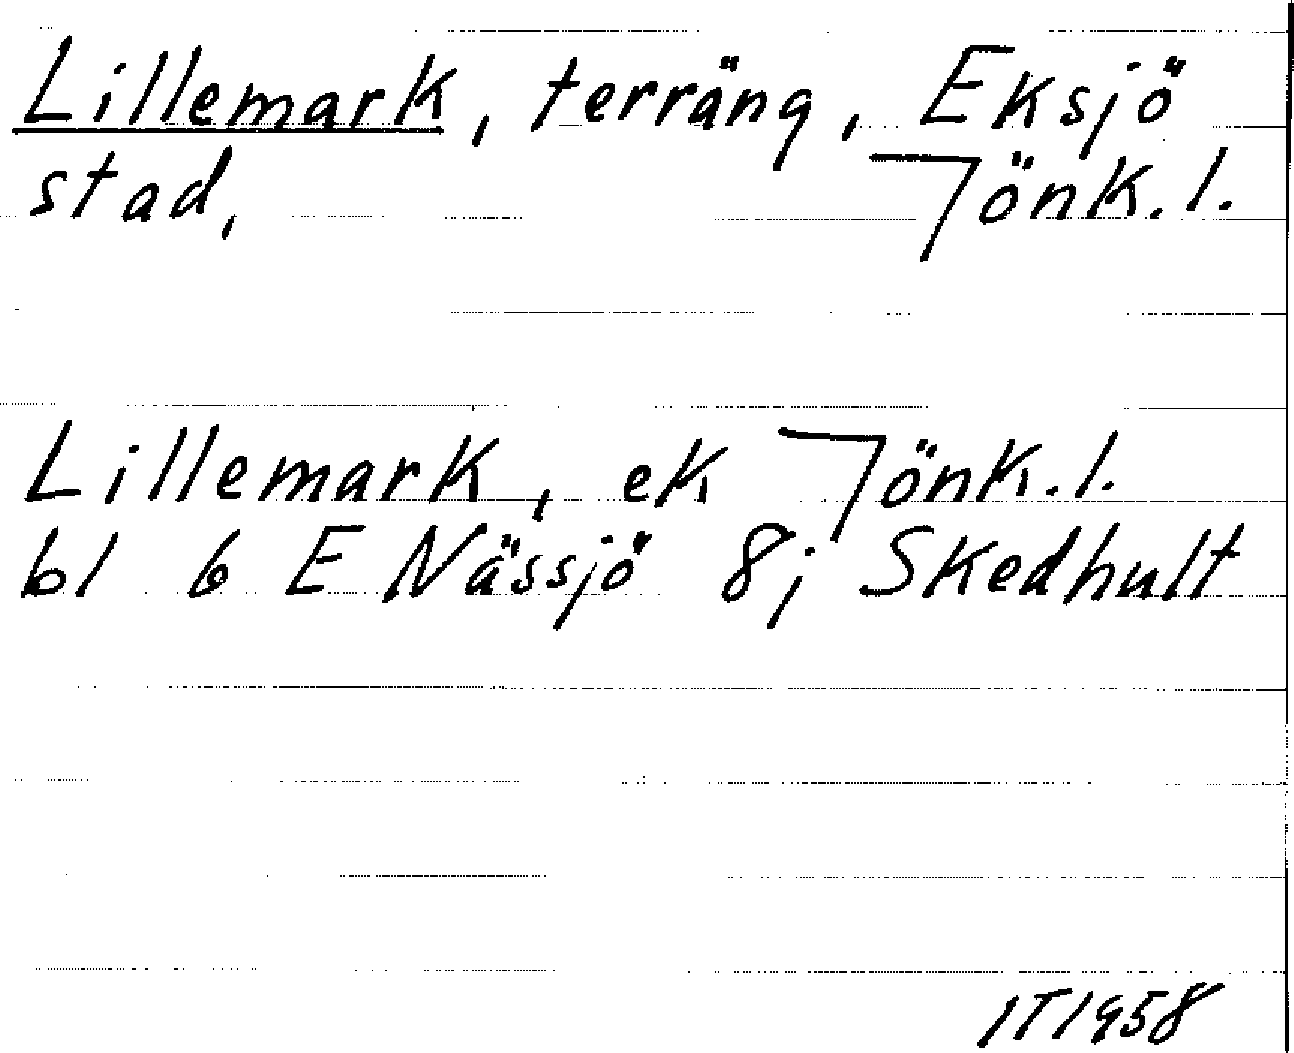 Lillemark, terräng, Eksjö
stad, Jönk.l.
Lillemark, ek Jönk.l.
bl 6 E Nässjö 8j Skedhult
IT1958